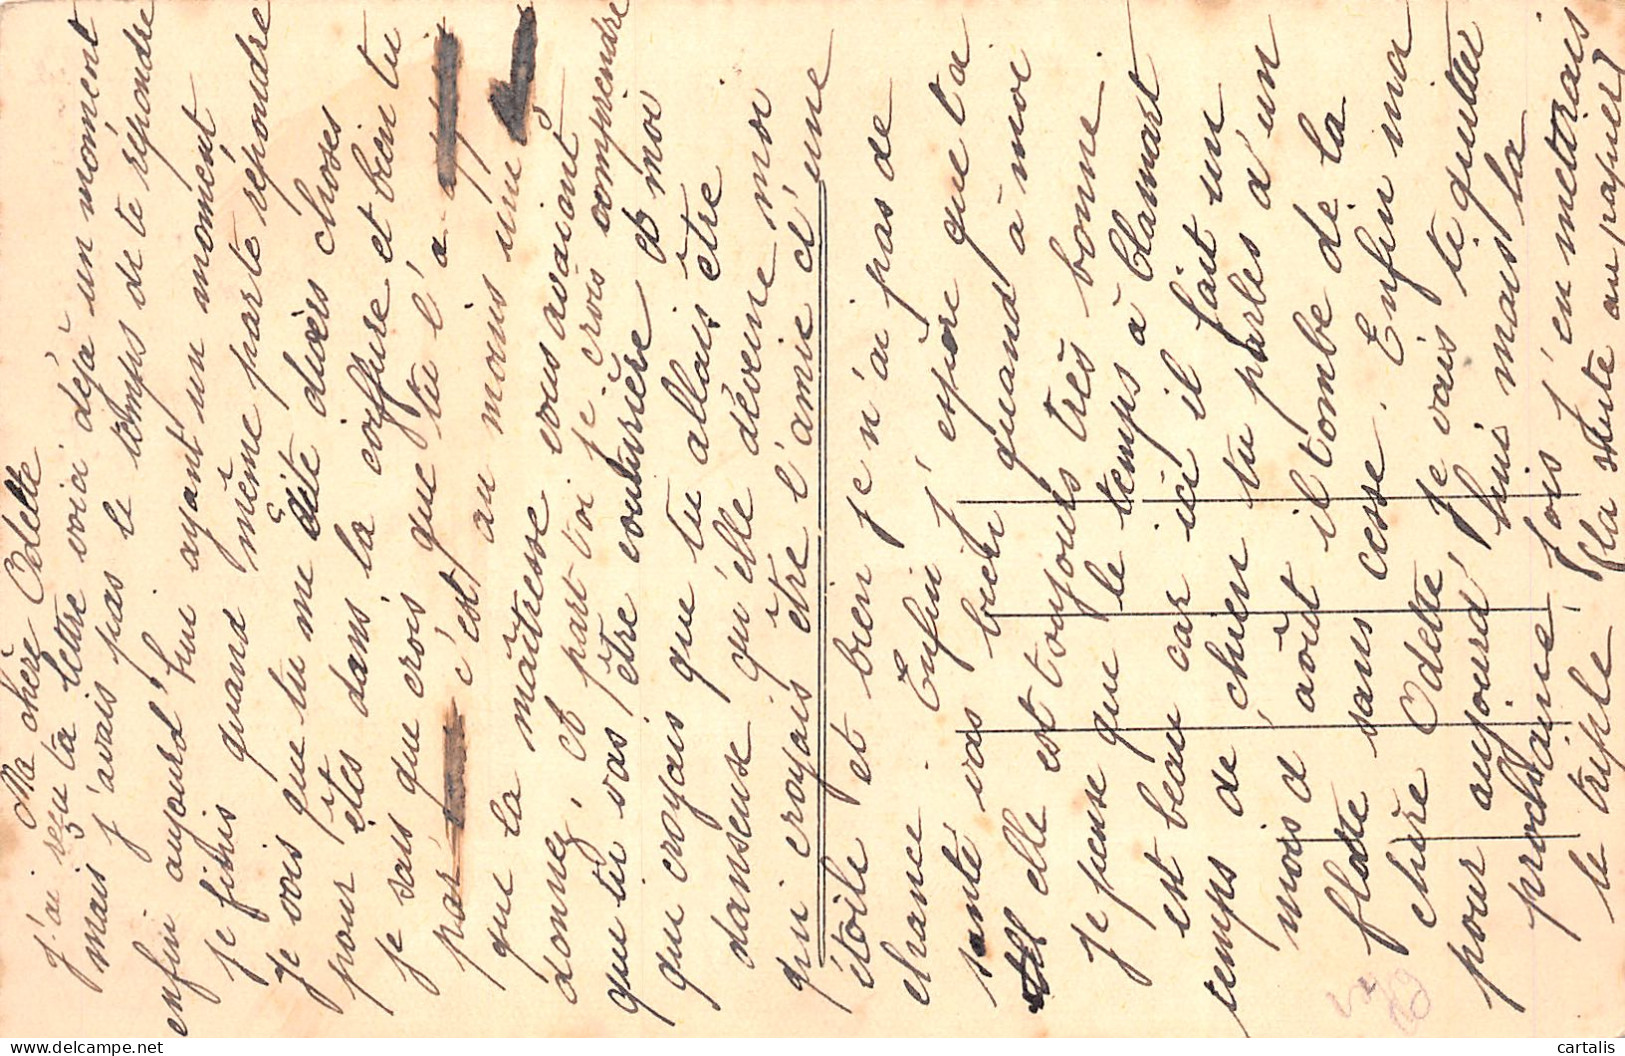 Ma chère Odette
J'ai reçu ta lettre voici déjà un moment
mais j'avais pas le temps de te répondre
enfin aujourd'hui ayant un moment
je finis quand même par te répondre
Je vois que tu me dite divers choses
pour êtes dans la coiffure et bien tu
je sais que crois que tu l'a
par c'est au moins une
que la maîtresse vous avaiont
donnez, et part toi je crois comprendre
que tu vas être couturière et moi
que croyais que tu allais être
danseuse qu'elle déveine moi
qui croyais être l'amie d'une
étoile et bien je n'ai pas de
chance. Enfin j'espère que ta
santé vas bien quand à moi
elle est toujours très bonne
Je pense que le temps à Clamart
est beau car ici il fait un
temps de chien tu parles d'un
mois d'août il tombe de la
flotte sans cesse. Enfin ma
chère Odette je vais te quitter
pour aujourd'hui mais la
prochaine fois j'en metirais
le triple (la suite au papier)
cartalis